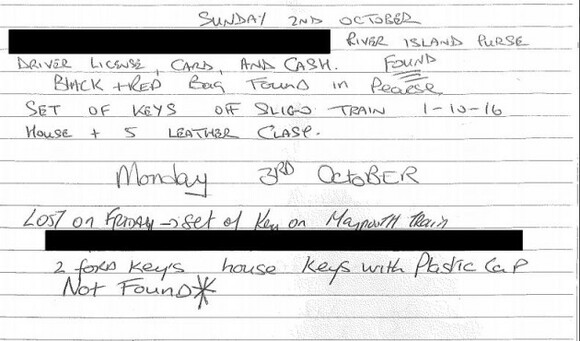 SUNDAY 2ND OCTOBER
RIVER ISLAND PURSE
DRIVER LICENSE, CARD, AND CASH. FOUND
BLACK + RED Bag Found in Pearse
SET OF KEYS OFF SLIGO TRAIN 1-10-16
HOUSE + 5 LEATHER CLASP.
Monday 3RD OCTOBER
LOST on FRIDAY → set of Key on Maynooth train
2 ford Key's house Keys with Plastic Cap
Not Found*